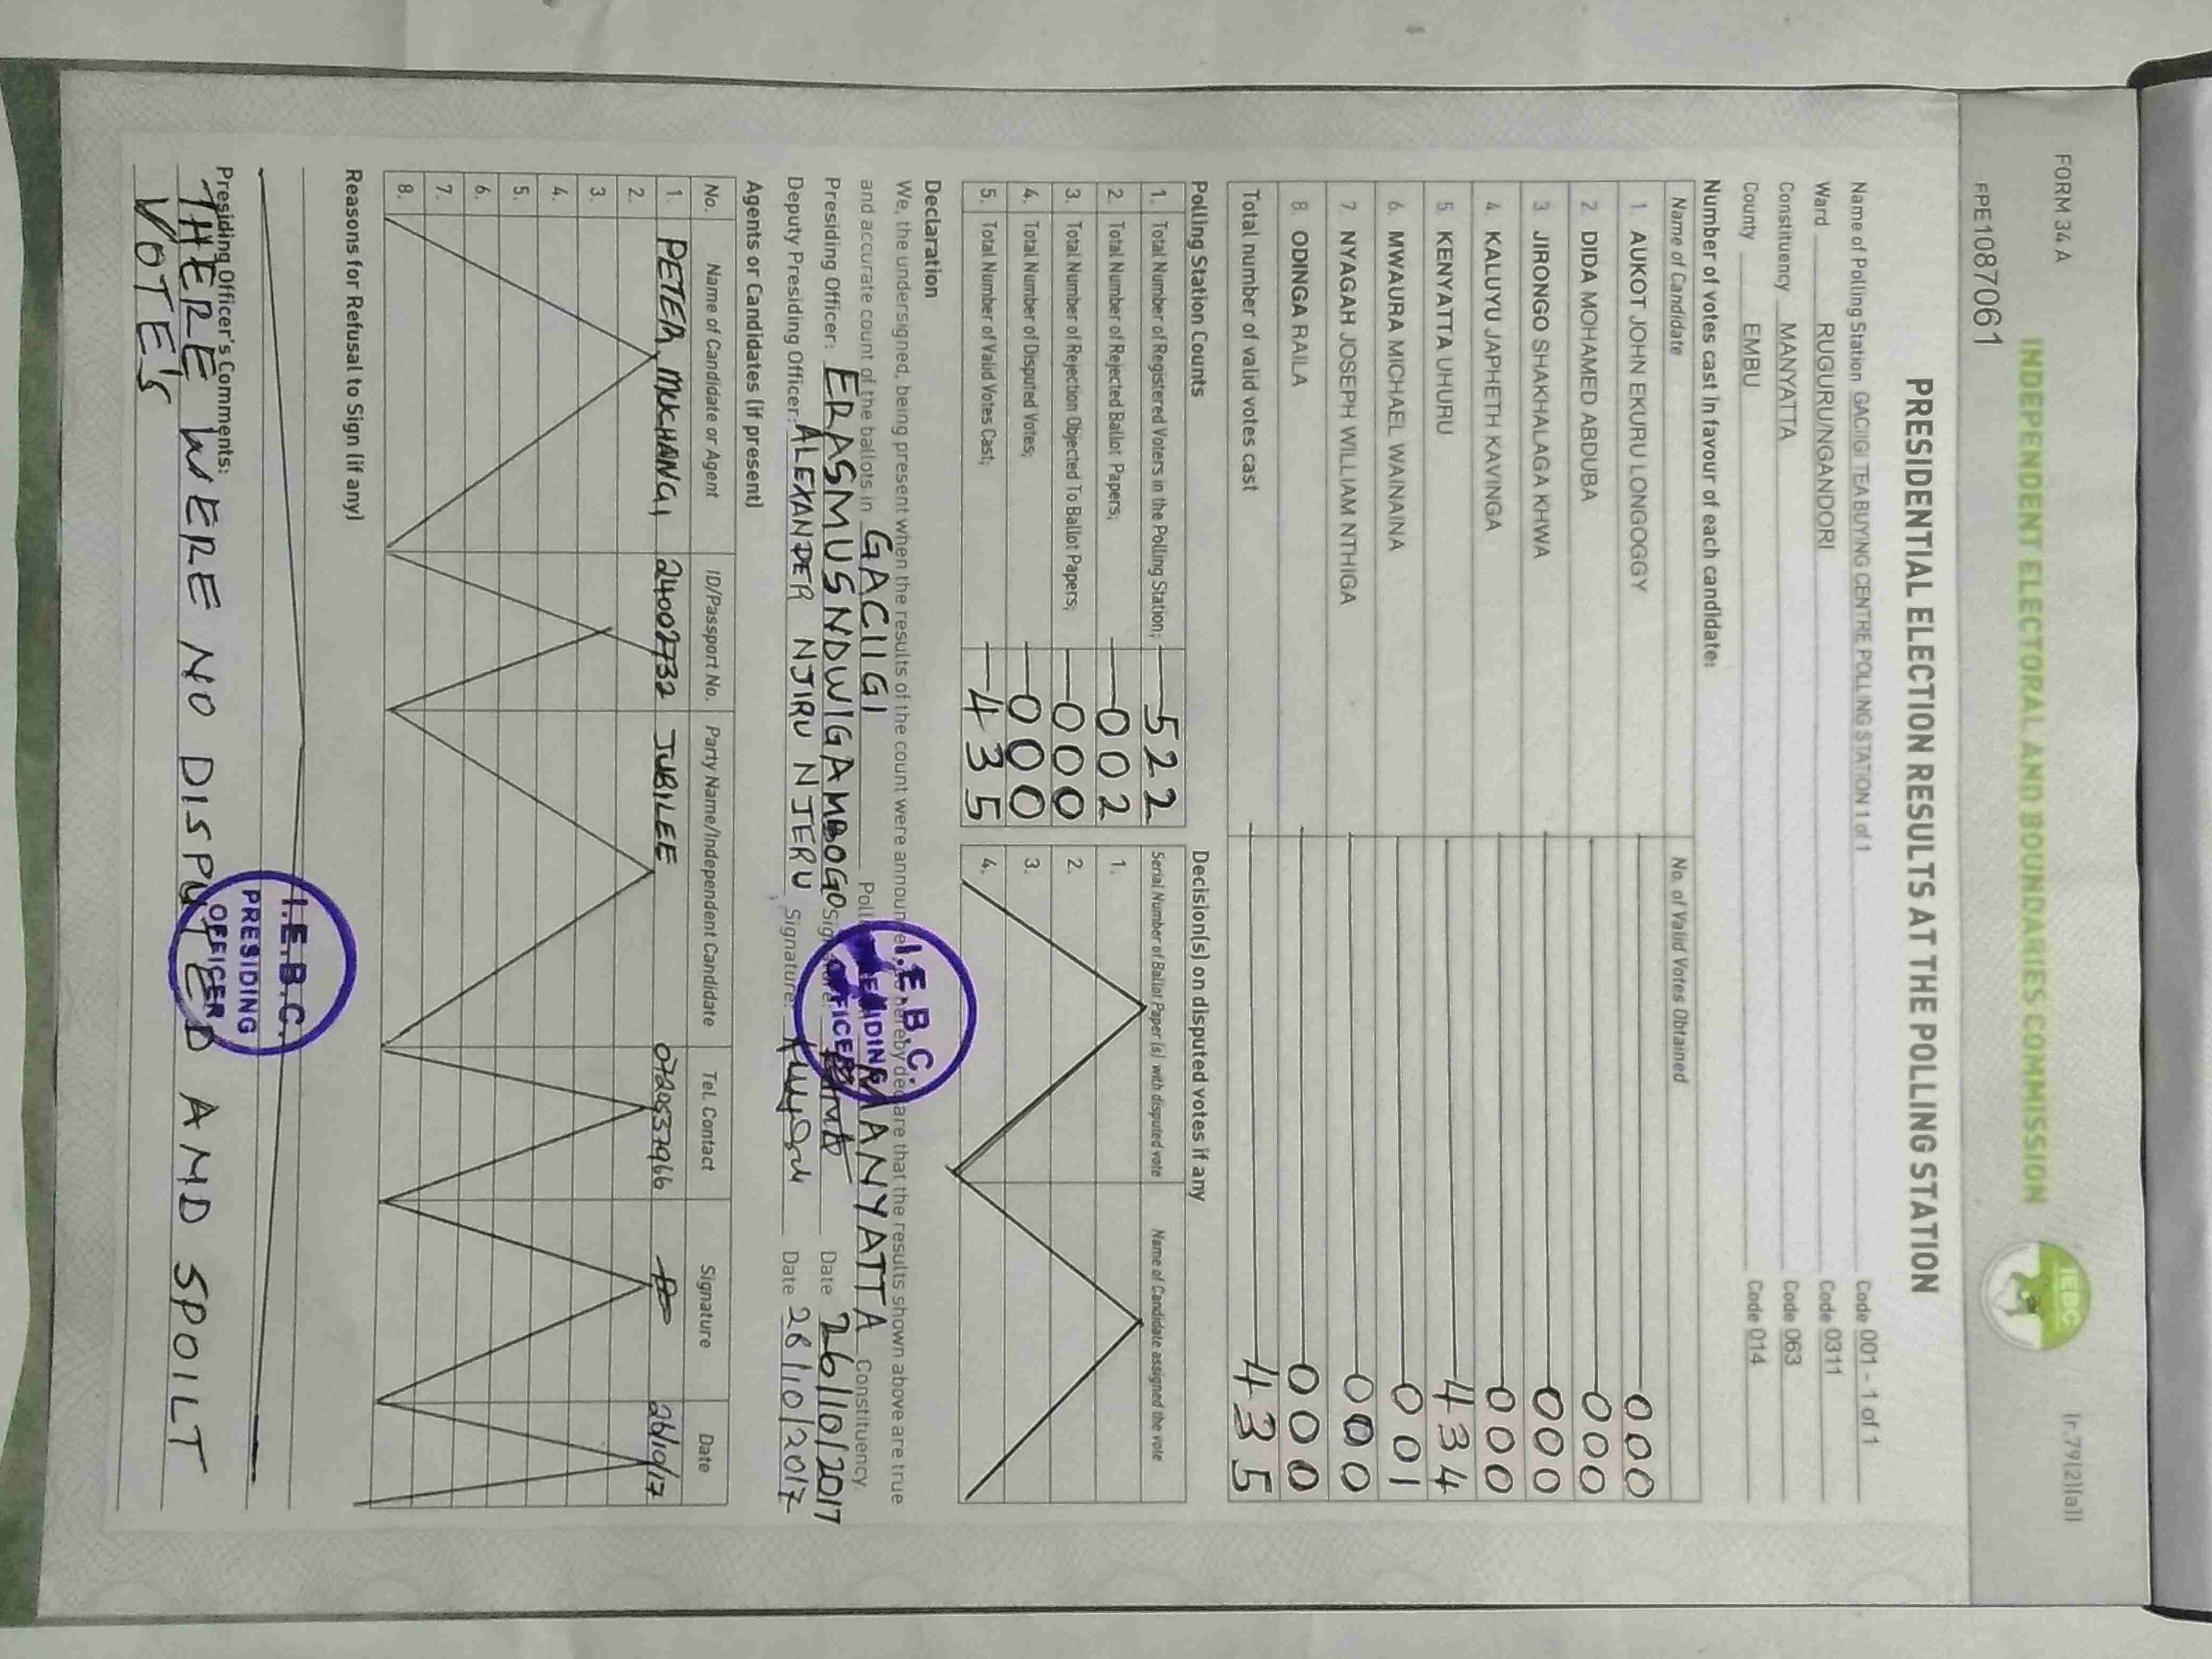 FORM 34A
(r.79(2)(a))
INDEPENDENT ELECTORAL AND BOUNDARIES COMMISSION
IEBC
FPE1087061
PRESIDENTIAL ELECTION RESULTS AT THE POLLING STATION
Name of Polling Station GACIIGI TEA BUYING CENTRE POLLING STATION 1 of 1 Code 001 - 1 of 1
Ward RUGURU/NGANDORI Code 0311
Constituency MANYATTA Code 063
County EMBU Code 014
Number of votes cast in favour of each candidate:
Name of Candidate No. of Valid Votes Obtained
1. AUKOT JOHN EKURU LONGOGGY 000
2. DIDA MOHAMED ABDUBA 000
3. JIRONGO SHAKHALAGA KHWA 000
4. KALUYU JAPHETH KAVINGA 000
5. KENYATTA UHURU 434
6. MWAURA MICHAEL WAINAINA 001
7. NYAGAH JOSEPH WILLIAM NTHIGA 000
8. ODINGA RAILA 000
Total number of valid votes cast 435
Polling Station Counts
1. Total Number of Registered Voters in the Polling Station; 522
2. Total Number of Rejected Ballot Papers; 002
3. Total Number of Rejection Objected To Ballot Papers; 000
4. Total Number of Disputed Votes; 000
5. Total Number of Valid Votes Cast; 435
Decision(s) on disputed votes if any
Serial Number of Ballot Paper (s) with disputed vote Name of Candidate assigned the vote
1.
2.
3.
4.
Declaration
We, the undersigned, being present when the results of the count were announced, hereby declare that the results shown above are true
and accurate count of the ballots in GACIIGI MANYATTA Constituency.
Presiding Officer: ERASMUS NDWIGA MBOGO Signature: Date 26/10/2017
Deputy Presiding Officer: ALEXANDER NJIRU NJERU Signature: Date 26/10/2017
I.E.B.C.
PRESIDING
OFFICER
Agents or Candidates (if present)
No. Name of Candidate or Agent ID/Passport No. Party Name/Independent Candidate Tel. Contact Signature Date
1. PETER MUCHANGI 24002732 JUBILEE 0720537966 26/10/17
2.
3.
4.
5.
6.
7.
8.
Reasons for Refusal to Sign (if any)
I.E.B.C.
PRESIDING
OFFICER
Presiding Officer's Comments:
THERE WERE NO DISPUTED AMD SPOILT
VOTE'S